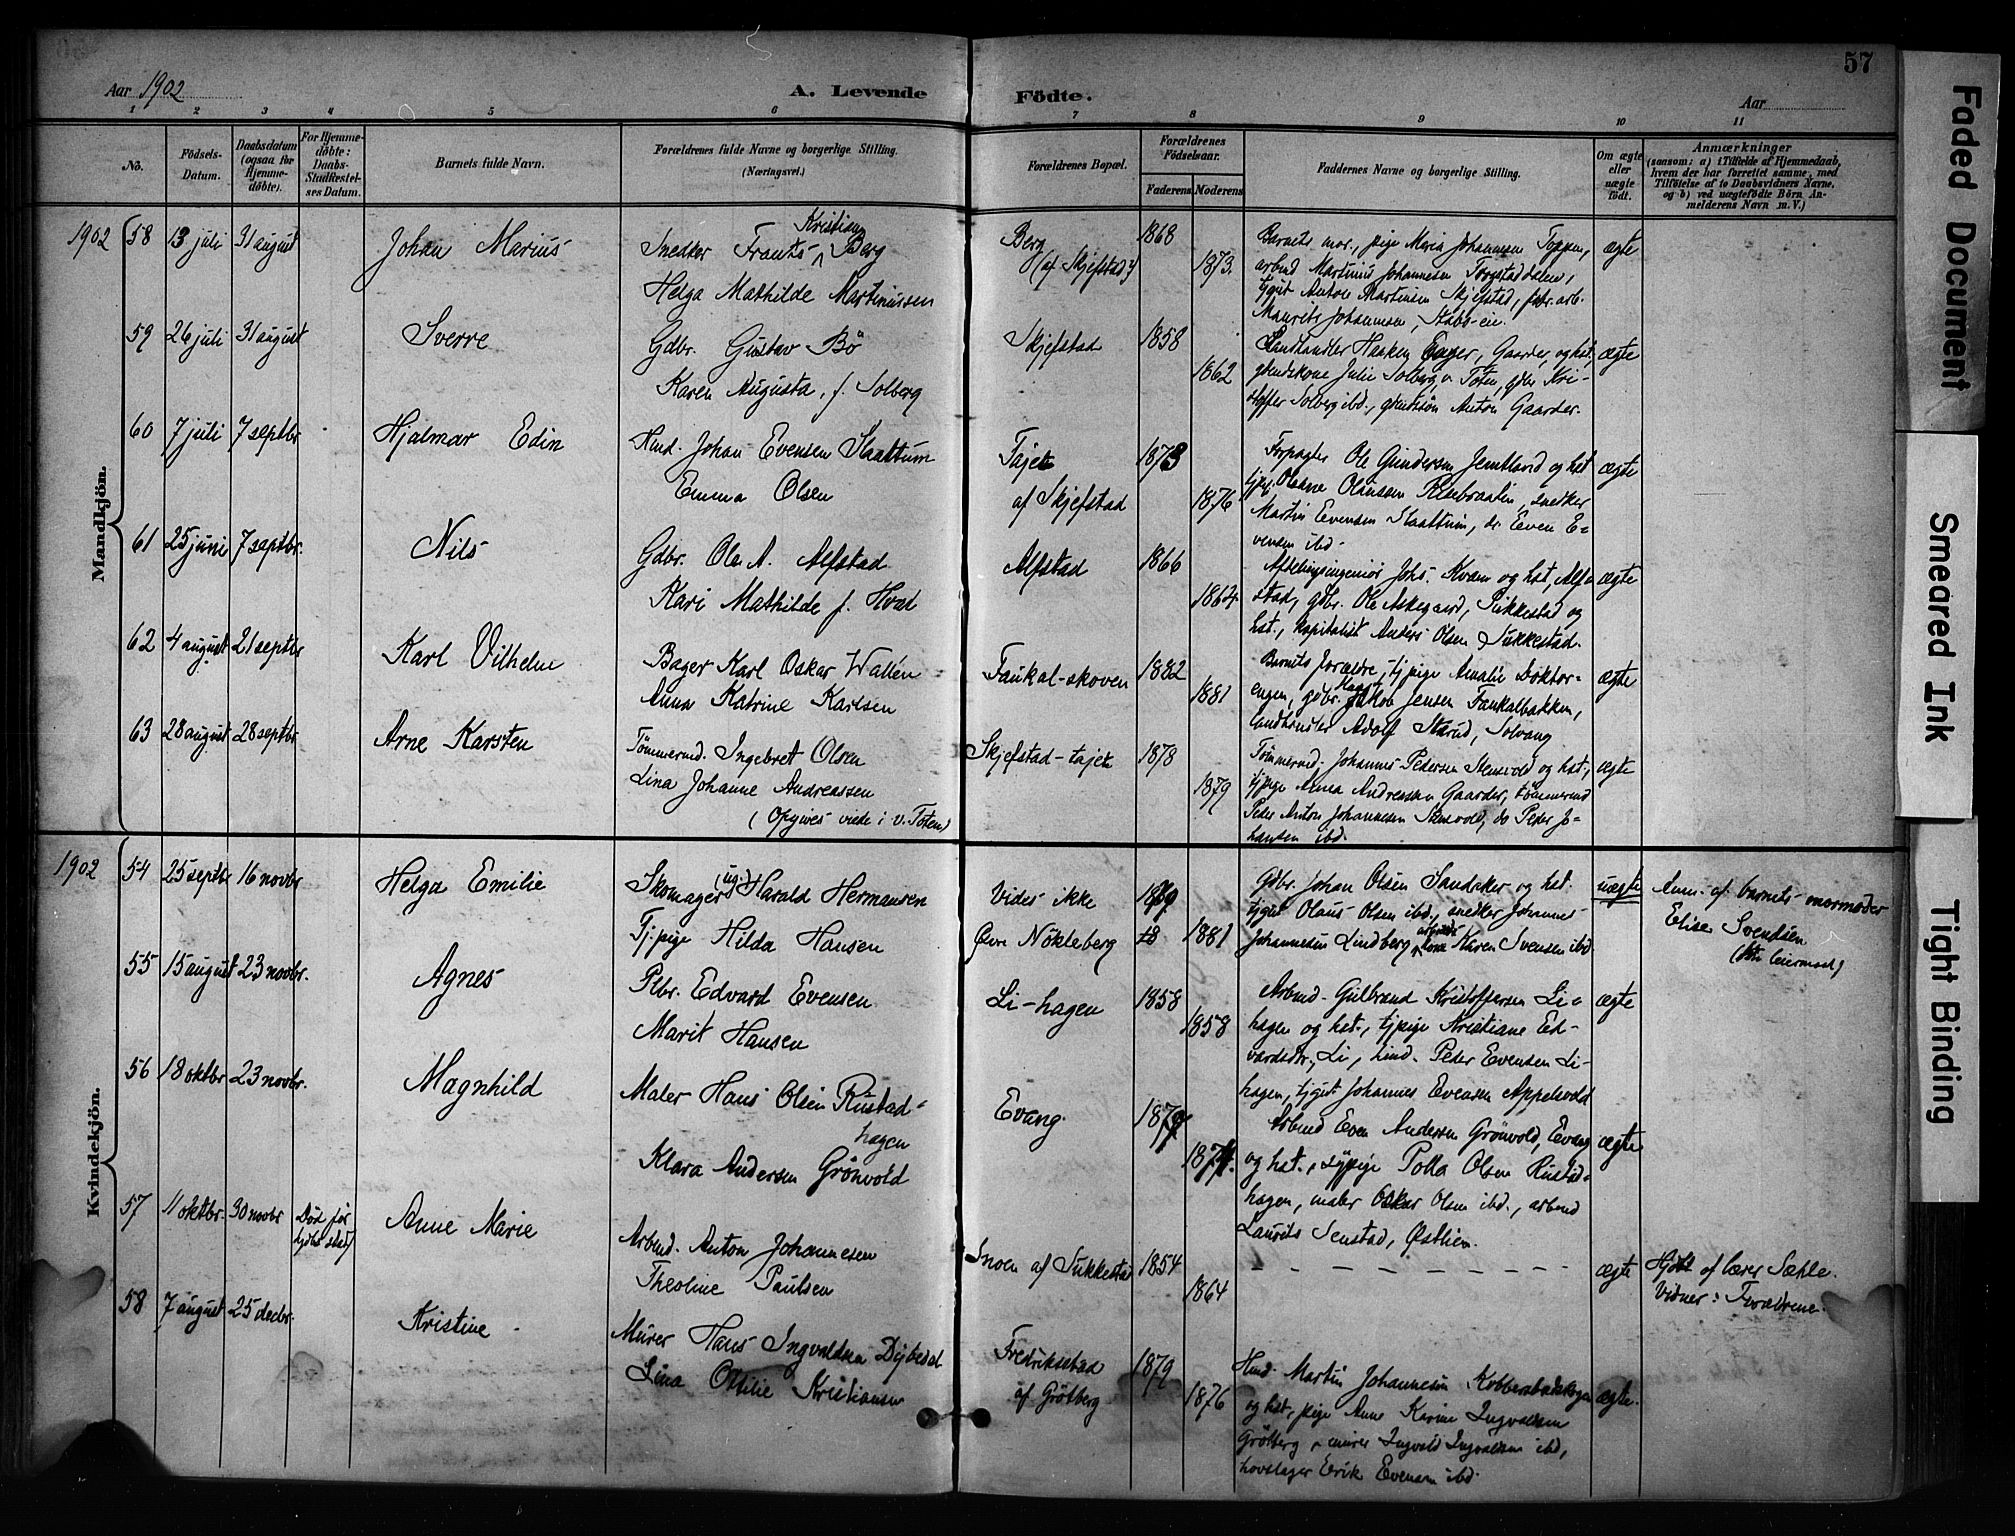 57
Aar 1902
A. Levende
Födte.
Aar
1 2 3 4 5 6 7 8 9 10 11
No.
Födsels-Datum.
Daabsdatum (ogsaa for Hjemme-døbte).
For Hjemme-døbte: Daabs-Stadfæstelses Datum.
Barnets fulde Navn.
Forældrenes fulde Navne og borgerlige Stilling. (Næringsvei.)
Forældrenes Bopæl.
Forældrenes Fødselsaar.
Faderens. Moderens.
Faddernes Navne og borgerlige Stilling.
Om ægte eller uægte født.
Anmærkninger
(saasom: a) i Tilfælde af Hjemmedaab, hvem der har forrettet samme, med Tilføielse af to Daabsvidners Navne, og b) ved uægtefødte Børn Anmelderens Navn m. V.)
Mandkjön.
1902 58 13 juli 31 august Johan Marius
Snedker Frants Kristian Berg
Helga Mathilde Martinussen
Berg (af Skjefstad?) 1868
1873.
Barnets mor, pige Maria Johannesen Toppen,
arbmd Martinus Johannesen
tjgut Anton Martinsen Skjefstad, fabr. arb.
Maurits Johannesen, Stabs-eie.
ægte
59 26 juli 31 august Sverre
Gdbr. Gustav Bö
Karen Augusta, f. Solberg
Skjefstad 1858
1862
Landhandler Haaken Enger, Gaarder, og hst,
gbrudskone Julie Solberg, v. Toten, gdbr Kri-
stoffer Solberg ibd., gbrudssøn Anton Gaarder.
ægte
60 7 juli 7 septbr Hjalmar Edin
Hmd. Johan Evensen Slaattum
Emma Olsen
Tajet
af Skjefstad
1873
1876
Forpagter Ole Gundersen Jemtland og hst
tjpi. Oleane Olaussen snedker
Martin Evensen Slaattum, do Even E-
vensen ibd.
ægte
61 25 juni 7 septbr. Nils
Gdbr. Ole A. Alfstad
Kari Mathilde f. Hval
Alfstad 1866
1864
Afdelingsingeniør Johs. Kvam og hst, Alf-
stad, gdbr. Ole Askegaard, Sukkestad og
hst., kapitalist Anders Olsen Sukkestad.
ægte
62 4 august 21 septbr Karl Vilhelm
Bager Karl Oskar Wallén
Anna Katrine Karlsen
Faukal-skoven 1882
1881
Barnets forældre, tjpige Amalie Doktor-
engen, gdbr. Jakob Jensen Faukalbakken,
landhandler Adolf Starud, Solvang
ægte
63 28 august 28 septbr Arne Karsten
Tømmermd. Ingebret Olsen
Lina Johanne Andreassen
(Opgives viede i v. Toten)
Skjefstad-tajet 1878
1879
Tømmermd. Johannes Pedersen Stensvold og hst,
tjpige Anna Andreassen Gaarder, tømmermd
Peder Anton Johannesen Stensvold, do Peder Jo-
hansen ibd.
ægte
Kvindekjön.
1902 54 25 septbr 16 novbr Helga Emilie
Skomager (ug.) Harald Hermansen
Tj.pige Hilda Hansen
Vides ikke 1869
Øvre Nökleberg 18 1881
Gdbr. Johan Olsen Sandaker og hst.
tjgut Olaus Olsen ibd., snedker Johannes
Johannesen Lindberg, kone Karen Svensen ibd
uægte
Anm. af barnets mormoder
Elise Svendsen
55 15 august 23 novbr. Agnes
Plbr. Edvard Evensen
Marit Hansen
Li-hagen 1858
1858
Arbmd. Gulbrand Kristoffersen Li-
hagen og hst., tjpige Kristiane Ed-
vardsdtr, Li, hmd. Peder Evensen Li-
hagen, tjgut Johannes Evensen Appelsvold
ægte
56 18 oktbr 23 novbr. Magnhild
Maler Hans Olsen Rustad-
hagen
Klara Andersen Grönvold
Evang. 1879
1874.
Arbmd Even Andersen Grönvold, Evang
og hst., sypige Polla Olsen Rustad-
hagen, maler Oskar Olsen ibd., arbmd
Laurits Senstad, Østlien.
ægte
57 11 oktbr. 30 novbr Død før
stadf Anne Marie
Arbmd. Anton Johannesen
Theoline Paulsen
Snoen af Sukkestad 1854
1864
ægte
Hjdbt af lærer Sæhle.
Vidner: Forældrene.
58 7 august 25 decbr. Kristine
Murer Hans Ingvaldsen Dybedal
Lina Otilie Kristiansen
Fredriksstad
af Grötberg
1879
1876
Hmd. Martin Johannesen Kobberstadskogen
og hst, pige Anne Karine Ingvaldsen
Grötberg, murer Ingvald Ingvaldsen ibd,
hovslager Erik Evensen ibd.
ægte.
Faded Document
Smeared Ink
Tight Binding